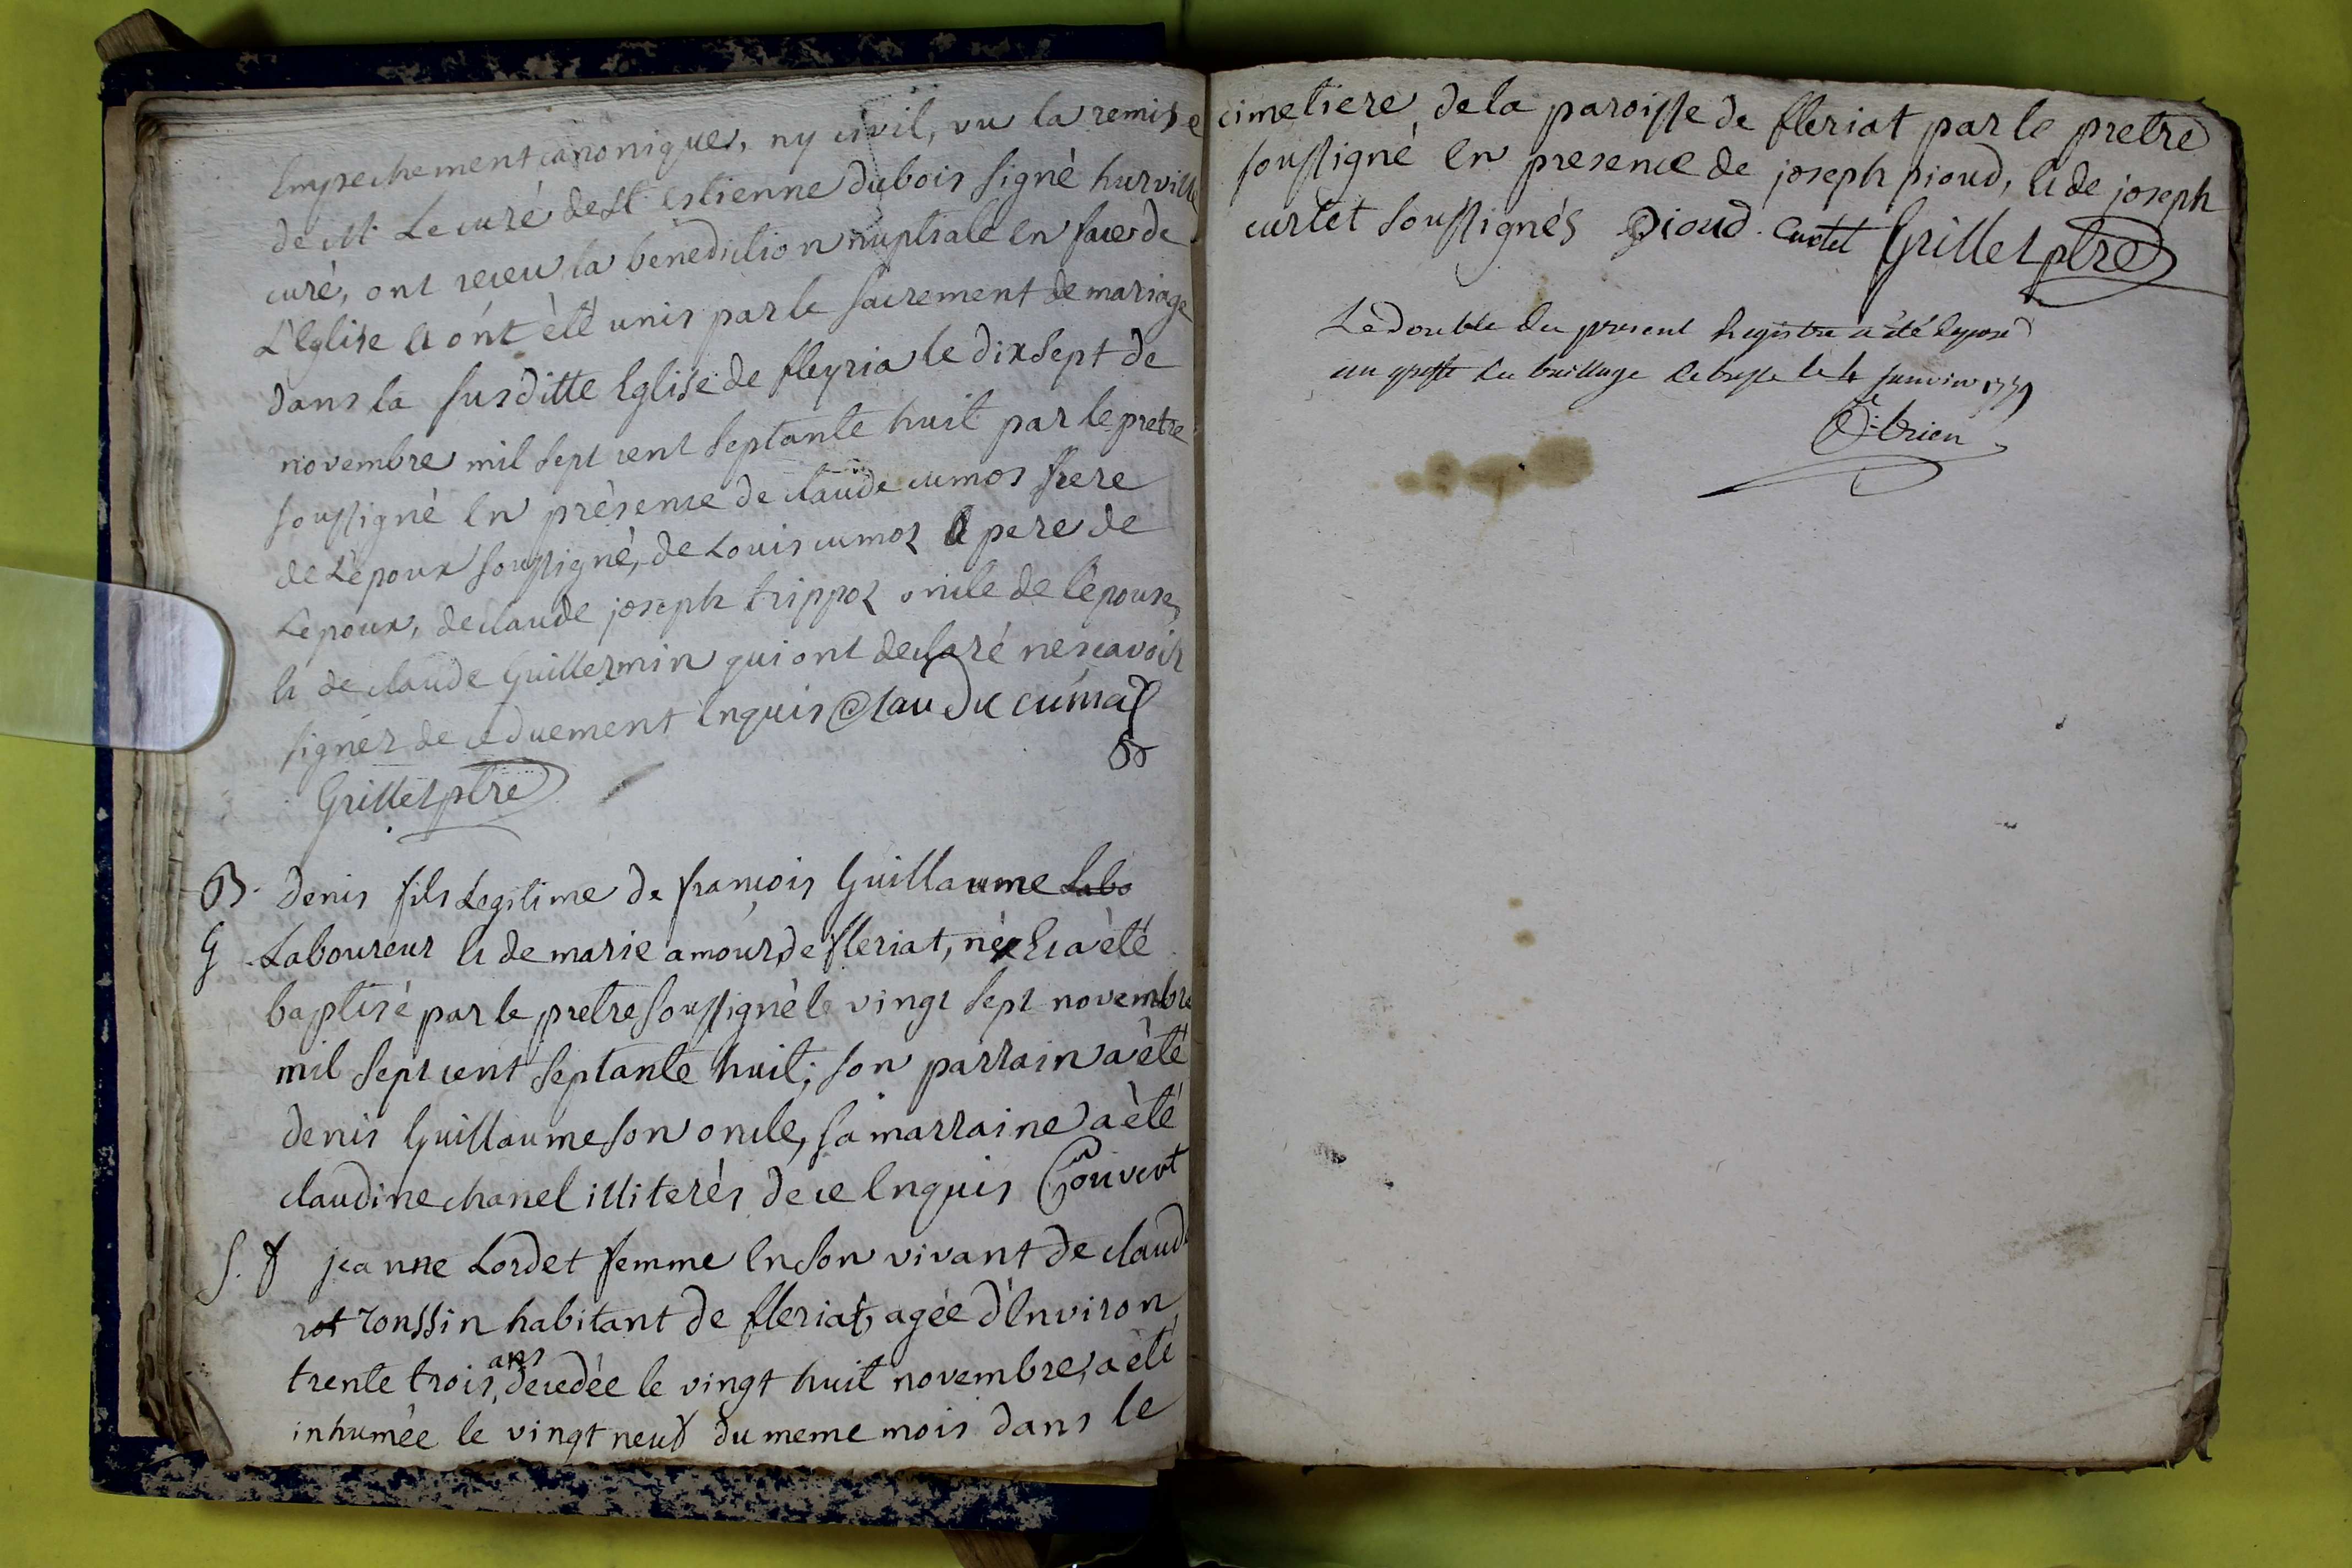 Empechement canonique, ny civil, vu la remise
de Mr Le curé de St Estienne dubois signé hurville
curé, ont receu la bénédiction nuptiale en face de
L'Eglise et ónt été unis par le sacrement de mariage
dans la susditte Eglise de fleyria le dix sept de
novembre mil sept cent septante huit par le pretre
soussigné en présence de claude cumos frere
de L'epoux soussigné, de Louis cumos pere de
L'epoux, de claude joseph trippoz oncle de l'epouse,
et de claude Guillermin qui ont declaré ne scavoir
signer de ce duement enquis Claude cumas
Grillet ptre
B. denis fils Legitime de françois Guillaume Labo
G Laboureur et de marie amour de fleriat, né et a été
baptisé par le pretre soussigné le vingt sept novembre
mil sept cent septante huit; son parrain a été
denis Guillaume son oncle, sa marraine a été
claudine chanel illiterés de ce enquis Couvert
S. f jeanne Lordet femme en son vivant de claude
rot ronssin habitant de fleriat, agée d'environ
trente trois ans, decedée le vingt huit novembre, a été
inhumée le vingt neuf du meme mois dans le
cimetiere de la paroisse de fleriat par le pretre
soussigné en presence de joseph pioud, et de joseph
curtet soussignés Pioud. Curtet Grillet ptre
Le double du present Registre a été deposé
au greffe du baillage de bresse le 4 janvier 1779
O-brien